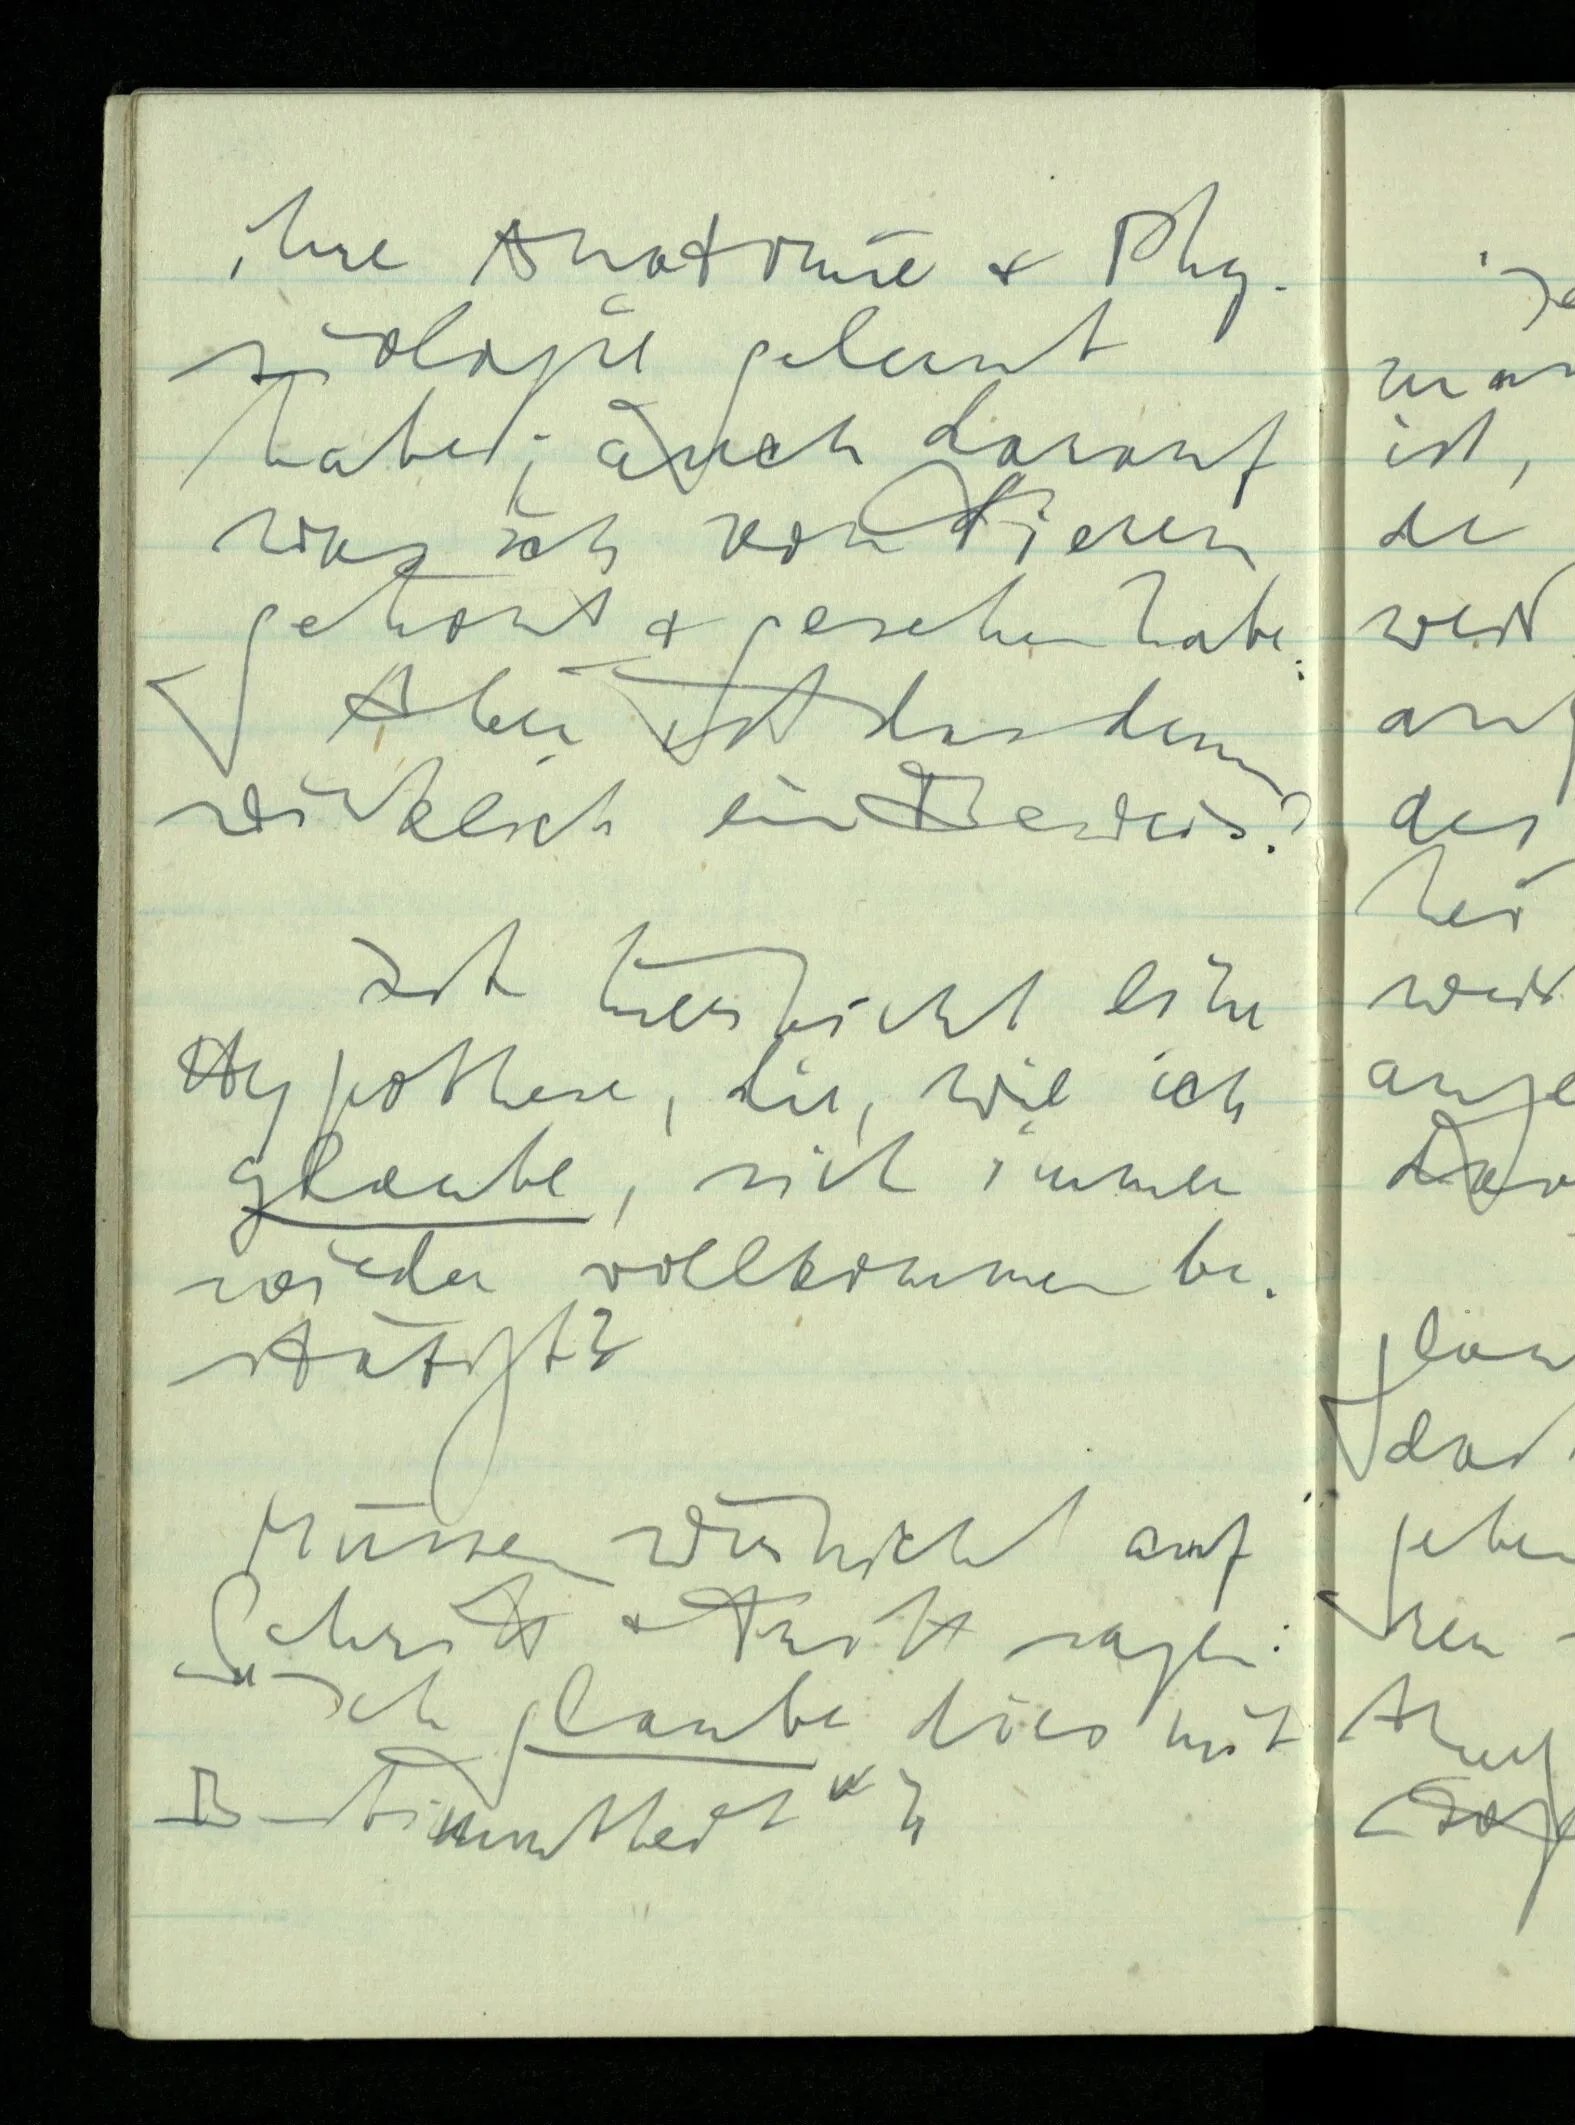 ihre Anatomie & Phy-
siologie gelernt
habe; auch darauf
was ich von Tieren
gehört & gesehen habe.
Aber ist das denn
wirklich ein Beweis?
Ist hier nicht eine
Hypothese, die, wie ich
glaube, sich immer
wieder vollkommen be-
stätigt?
Müssen wir nicht auf
Schritt & Tritt sagen:
"Ich glaube dies mit
Bestimmtheit"?
ist,
de
weit